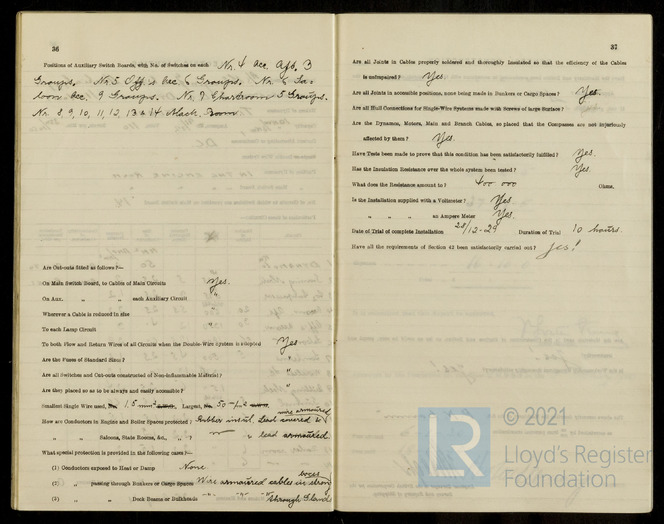 36
Positions of Auxiliary Switch Boards, with No. of Switches on each Nr. 4 Acc. Aft. 3
Groups. Nr. 5 Off. & Acc. 6 Groups. Nr. 6 Sa-
loon Acc. 9 Groups. Nr. 7 Chartroom 5 Groups.
Nr. 8, 9, 10, 11, 12, 13 & 14 Mach. Room
Are Cut-outs fitted as follows?—
On Main Switch Board, to Cables of Main Circuits Yes.
On Aux. „ „ each Auxiliary Circuit "
Wherever a Cable is reduced in size "
To each Lamp Circuit "
To both Flow and Return Wires of all Circuits when the Double-Wire System is adopted Yes
Are the Fuses of Standard Sizes? "
Are all Switches and Cut-outs constructed of Non-inflammable Material? "
Are they placed so as to be always and easily accessible? "
Smallest Single Wire used, No. 1.5 mm² Largest, No. 50 mm²
wire armoured
How are Conductors in Engine and Boiler Spaces protected? Rubber insul. Lead covered &
„ „ Saloons, State Rooms, &c., „ ? " & lead armoured
What special protection is provided in the following cases?—
(1) Conductors exposed to Heat or Damp None
boxes
(2) „ passing through Bunkers or Cargo Spaces Wire armoured cables in strong
(3) „ „ Deck Beams or Bulkheads " " " through Glands
37
Are all Joints in Cables properly soldered and thoroughly insulated so that the efficiency of the Cables
is unimpaired? Yes.
Are all Joints in accessible positions, none being made in Bunkers or Cargo Spaces? Yes.
Are all Hull Connections for Single-Wire Systems made with Screws of large Surface?
Are the Dynamos, Motors, Main and Branch Cables, so placed that the Compasses are not injuriously
affected by them? Yes.
Have Tests been made to prove that this condition has been satisfactorily fulfilled? Yes.
Has the Insulation Resistance over the whole system been tested? Yes.
What does the Resistance amount to? 400 000 Ohms.
Is the Installation supplied with a Voltmeter? Yes.
„ „ „ an Ampere Meter Yes.
Date of Trial of complete Installation 28/12-29 Duration of Trial 10 hours.
Have all the requirements of Section 42 been satisfactorily carried out? Yes!
LR
© 2021
Lloyd's Register
Foundation